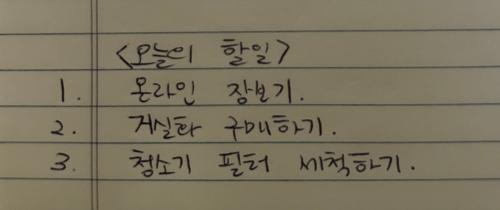 <오늘의 할일>
1. 온라인 장보기.
2. 거실화 구매하기.
3. 청소기 필터 세척하기.